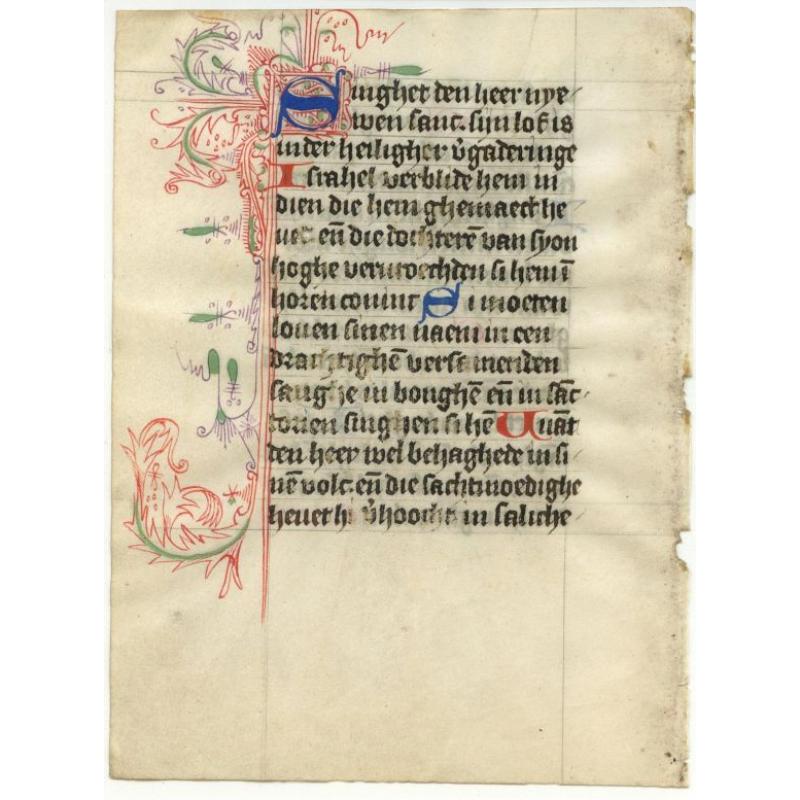 Singhet den heer nye
wen sanc. sijn lof is
in der heiligher v̄gaderinge
Israhel verblide hem in
dien die hem ghemaect he
uet en̄ die dochterē van syon
hoghe verwroechden si hem ī
horen coninc Si moeten
louen sinen naem in een
drachtighē versamenden
sanghe in bonghē en̄ in sāc
torien singhen si hē Want
den heer wel behaghede in si
nē volc. en̄ die sachtmoedighe
heuet hi v̄hoocht in saliche